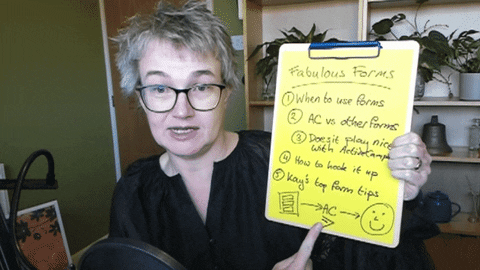 Fabulous Forms
① When to use forms
② AC vs other forms
③ Does it play nice
with ActiveCamp
④ How to hook it up
⑤ Kay's top form tips
AC